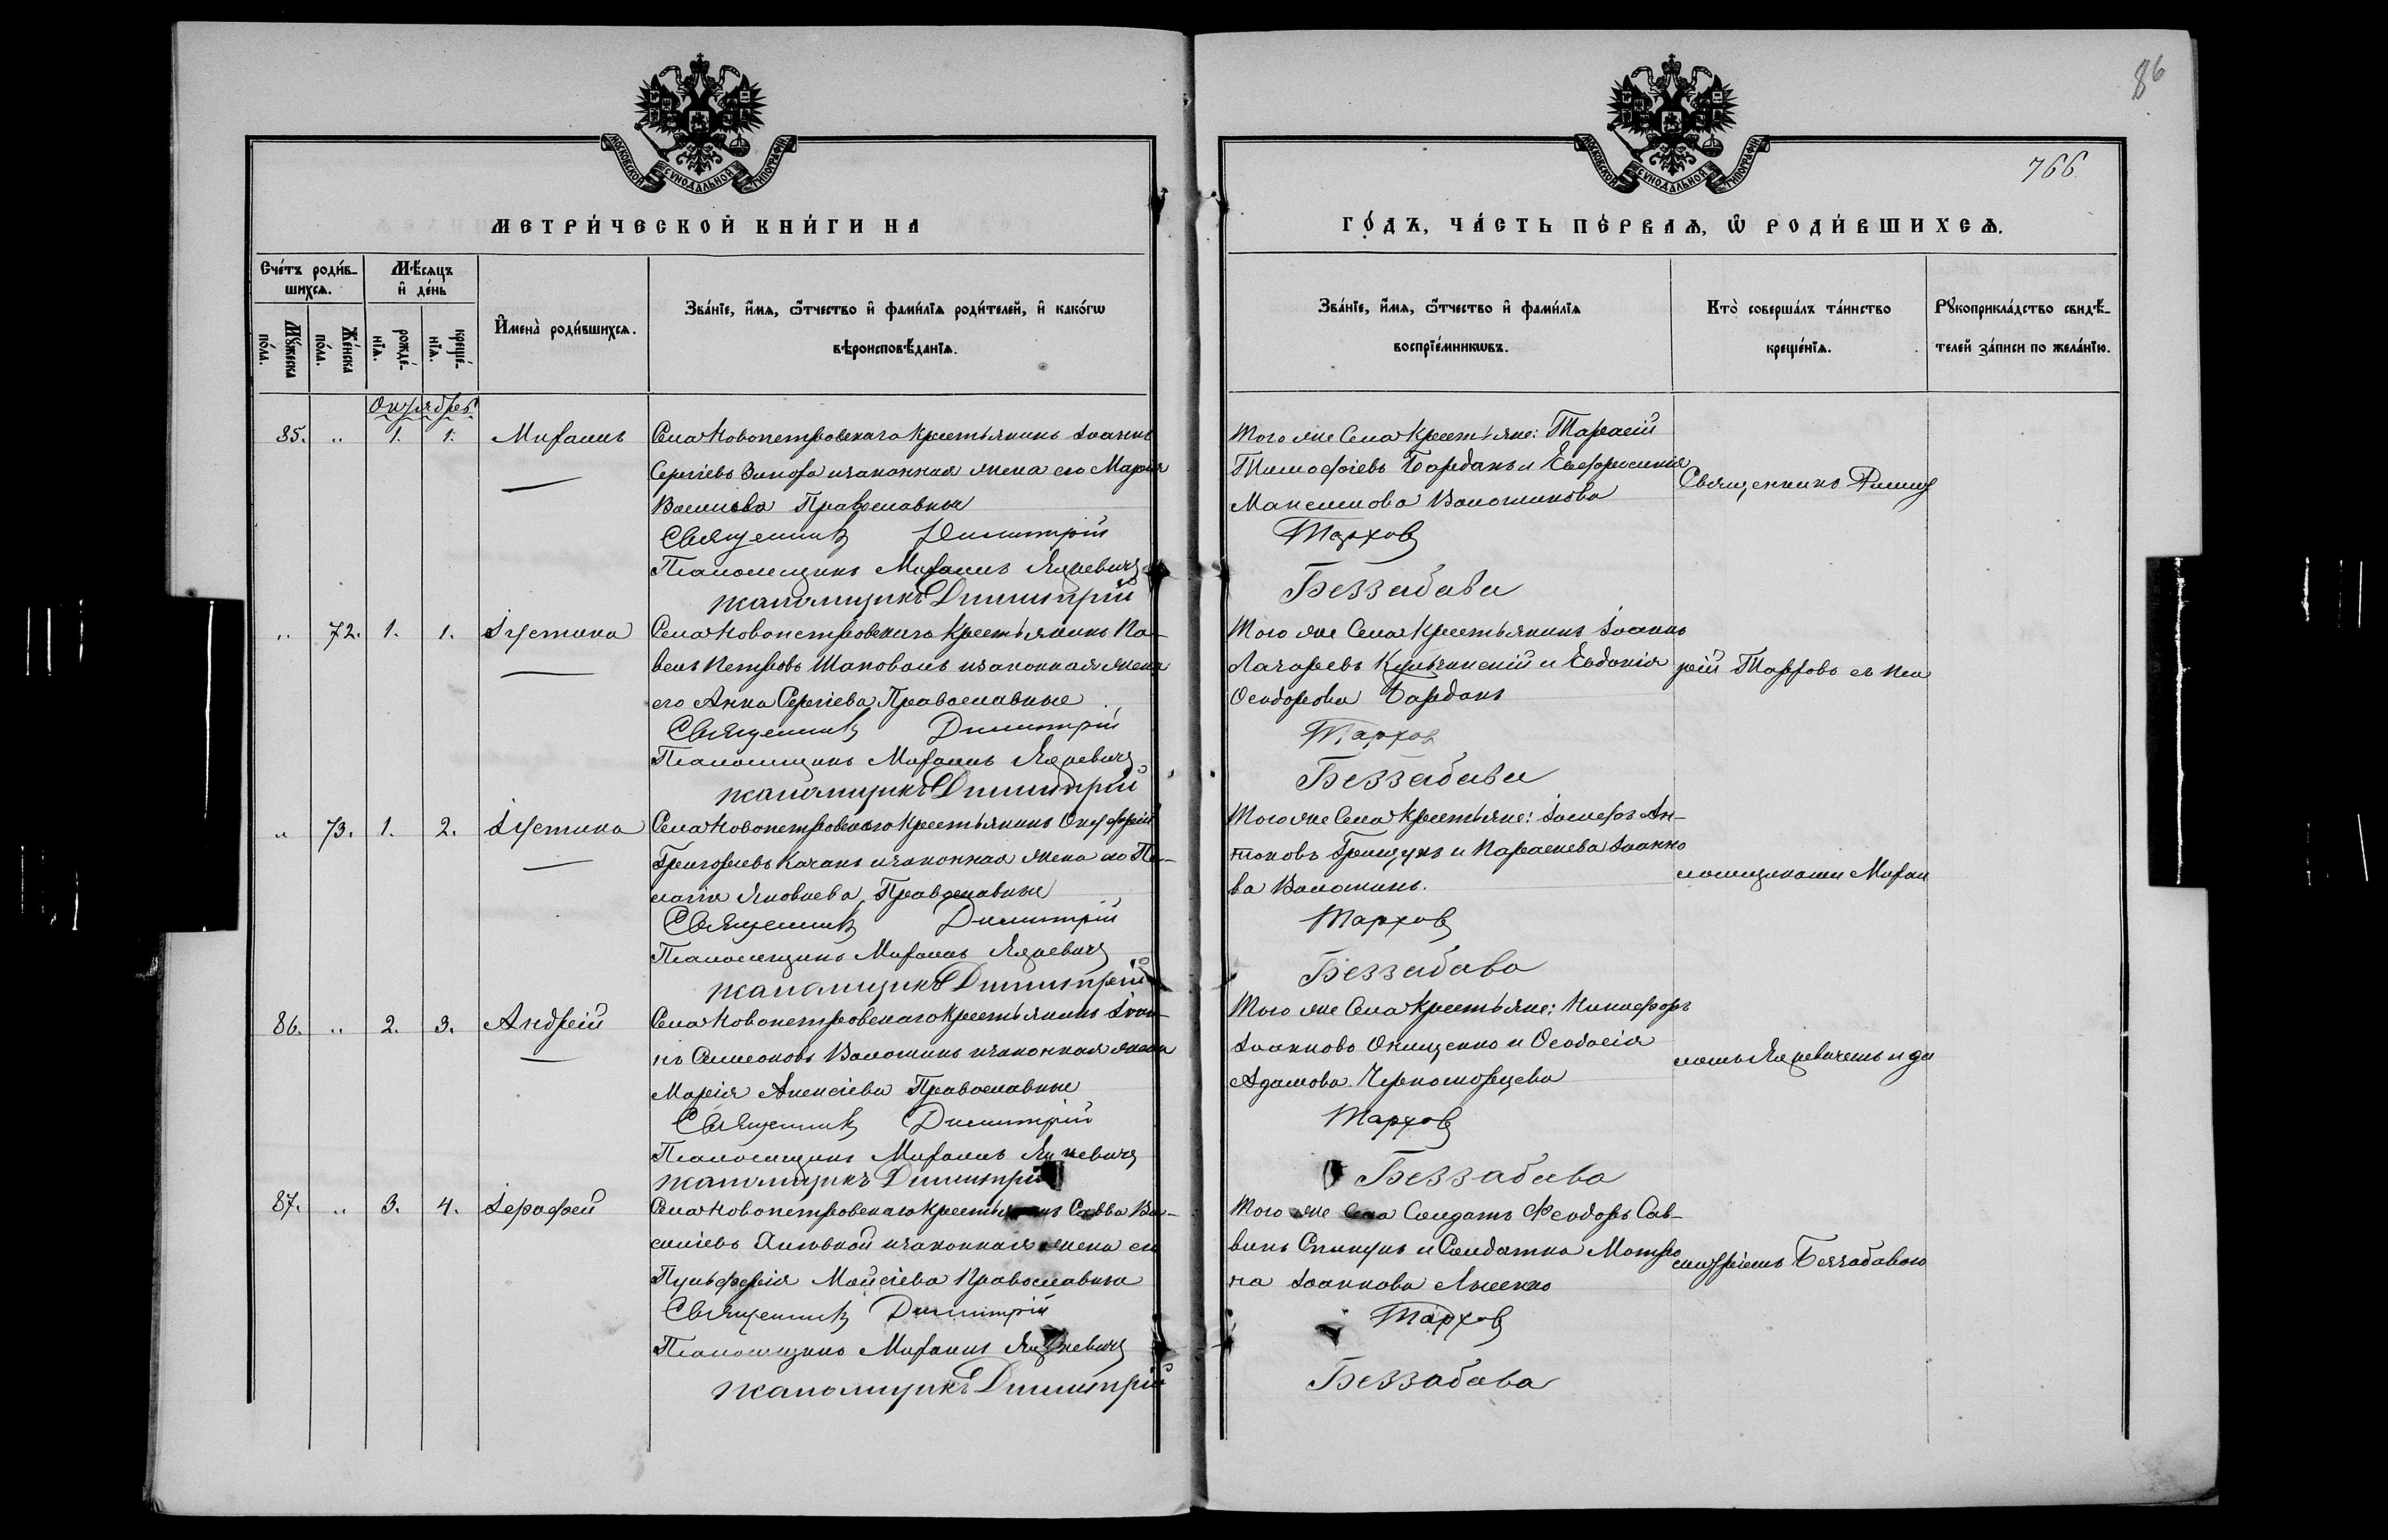 86
766.
МОСКОВСКОЙ СѴНОДАЛЬНОЙ ТИПОГРАФІИ
МОСКОВСКОЙ СѴНОДАЛЬНОЙ ТИПОГРАФІИ
МЕТРИ́ЧЕСКОЙ КНИ́ГИ НА
ГО́ДЪ, ЧА́СТЬ ПЕ́РВАѦ, Ѿ РОДИ́ВШИХСѦ.
Сче́тъ роди́в-
шихсѧ.
Мꙋ́жеска по́ла.
Же́нска по́ла.
Мѣ́сѧцъ
и҆ де́нь
рожде́-
нїѧ.
креще́-
нїѧ.
И҆мена̀ роди́вшихсѧ.
Зва́нїе, и҆́мѧ, ѻ҆́тчество и҆ фами́лїѧ роди́телей, и҆ како́гѡ
вѣроисповѣ́данїѧ.
Зва́нїе, и҆́мѧ, ѻ҆́тчество и҆ фами́лїѧ
воспрїе́мникѡвъ.
Кто̀ соверша́лъ та́инство
креще́нїѧ.
Рꙋкоприкла́дство свидѣ́-
телей за́писи по жела́нїю.
Октябрь
85. " 1. 1. Михаилъ
Села Новопетровскаго крестьянинъ Іоаннъ
Сергіевъ и законная жена его Марія
Православные
Священникъ Димитрій
Псаломщикъ Михаилъ Яцкевичъ
псаломщикъ Димитрій
Того же Села крестьяне: Тарасій
Тимофіевъ Барданъ и Евфросинія
Максимова Волошинова
Тархов
Беззабава
" 72. 1. 1. Іустина
Села Новопетровскаго крестьянинъ Па-
велъ Петровъ Шаповалъ и законная жена
его Анна Сергіева, Православные
Священникъ Димитрій
Псаломщикъ Михаилъ Яцкевичъ
псаломщикъ Димитрій
Того же Села крестьянинъ Іоаннъ
Лазаревъ и Евдокія
Ѳеодорова Барданъ
Тархов
Беззабава
" 73. 1. 2. Іустина
Села Новопетровскаго крестьянинъ Онуфрій
Григорьевъ Качанъ и законная жена его Пе-
лагія Яковлева, Православные
Священникъ Димитрій
Псаломщикъ Михаилъ Яцкевичъ
псаломщикъ Димитрій
Того же Села крестьяне: Іосифъ Ан-
тоновъ Грищукъ и Параскева Іоанно
ва Волошинъ.
Тархов
Беззабава
86. " 2. 3. Андрей
Села Новопетровскаго крестьянинъ Іоан-
нъ Симеоновъ Волошинъ и законная жена
Марія Алексіева Православные
Священникъ Димитрій
Псаломщикъ Михаилъ Яцкевичъ
псаломщикъ Димитрій
Того же Села крестьяне: Никифоръ
Іоанновъ Онищенко и Ѳеодосія
Адамова Черноморцева
Тархов
Беззабава
87. " 3. 4. Іерофей
Села Новопетровскаго крестьянинъ Савва Ва-
силіевъ и законная жена его
Пульхерія Мойсіева Православные
Священникъ Димитрій
Псаломщикъ Михаилъ Яцкевичъ
псаломщикъ Димитрій
Того же Села Солдатъ Ѳеодоръ Сав-
винъ и Солдатка Матро
на Іоаннова Лысенко
Тархов
Беззабава
Священникъ Димит
рій Тарховъ съ пса
ломщиками Михаи
ломъ Яцкевичемъ и Ди
митріемъ Беззабавою